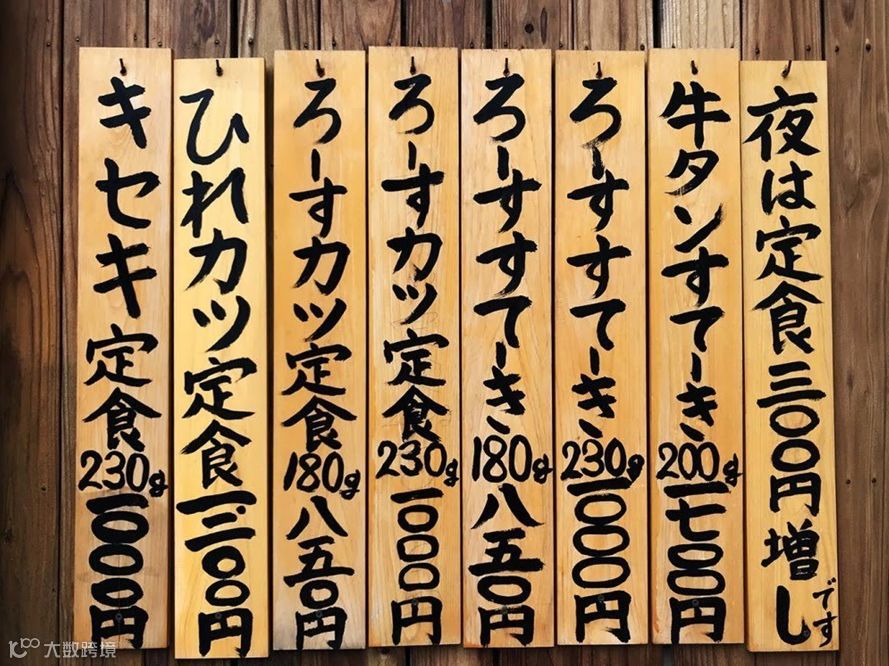 夜は定食三〇〇円増しです
牛タンすてーき200g一七〇〇円
ろーすすてーき230g一〇〇〇円
ろーすすてーき180g八五〇円
ろーすカツ定食230g一〇〇〇円
ろーすカツ定食180g八五〇円
ひれカツ定食一三〇〇円
キセキ定食230g一〇〇〇円
大数跨境